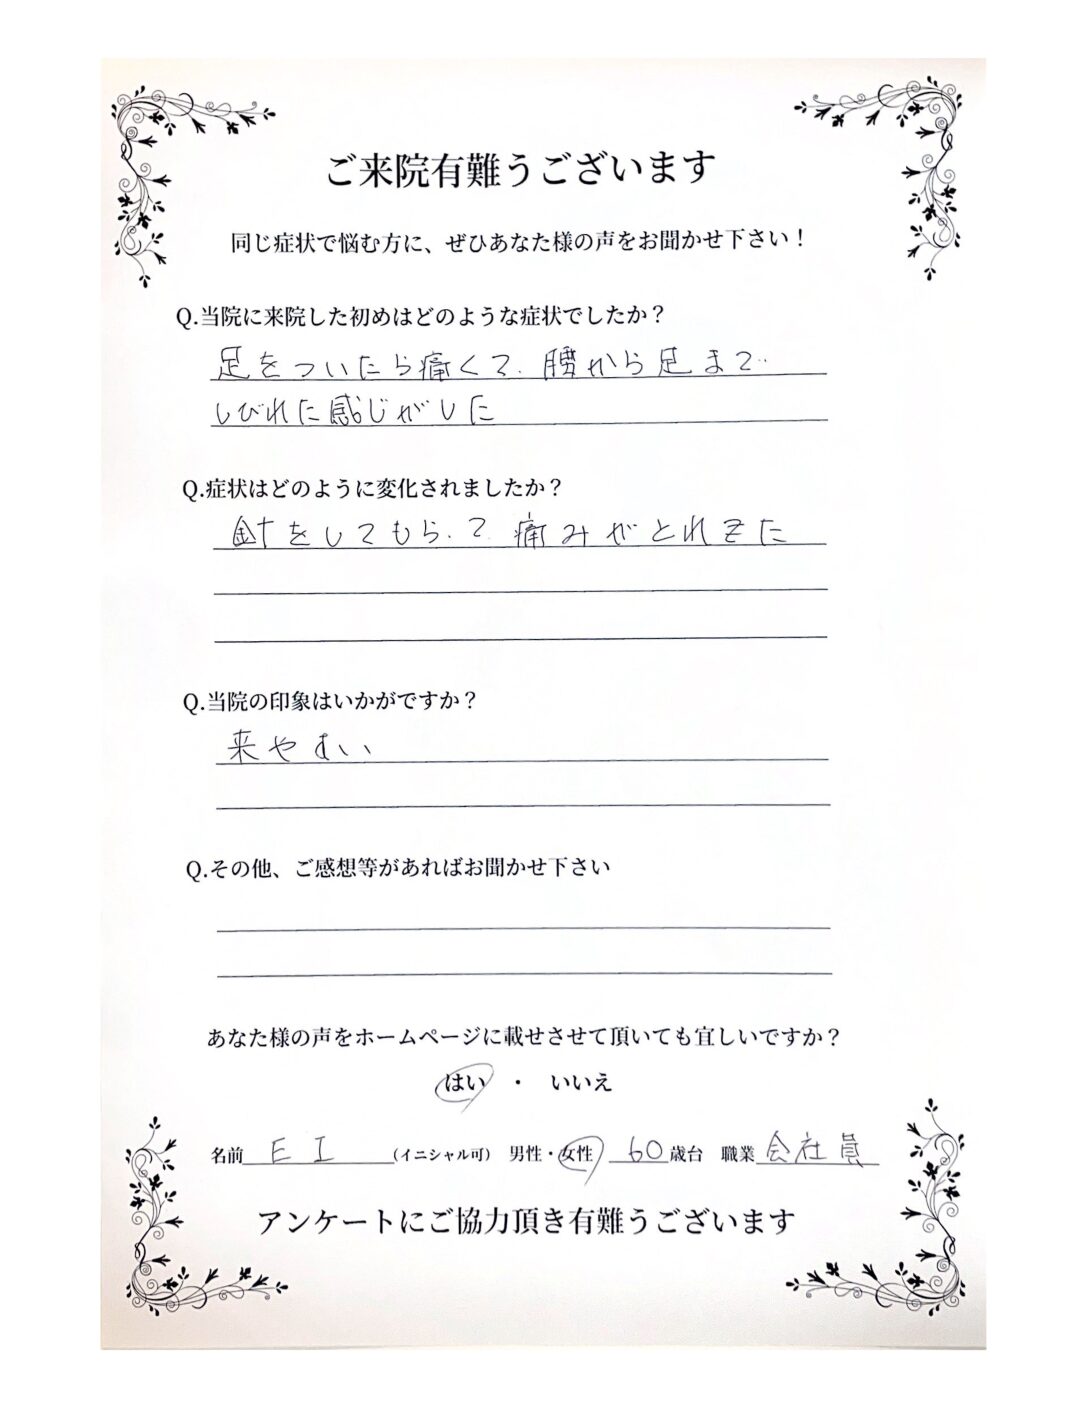 ご来院有難うございます
同じ症状で悩む方に、ぜひあなた様の声をお聞かせ下さい！
Q.当院に来院した初めはどのような症状でしたか？
足をついたら痛くて、腰から足まで
しびれた感じがした
Q.症状はどのように変化されましたか？
針をしてもらって痛みがとれてきた
Q.当院の印象はいかがですか？
来やすい
Q.その他、ご感想等があればお聞かせ下さい
あなた様の声をホームページに載せさせて頂いても宜しいですか？
はい ・ いいえ
名前 E I (イニシャル可) 男性・女性 60歳台 職業 会社員
アンケートにご協力頂き有難うございます